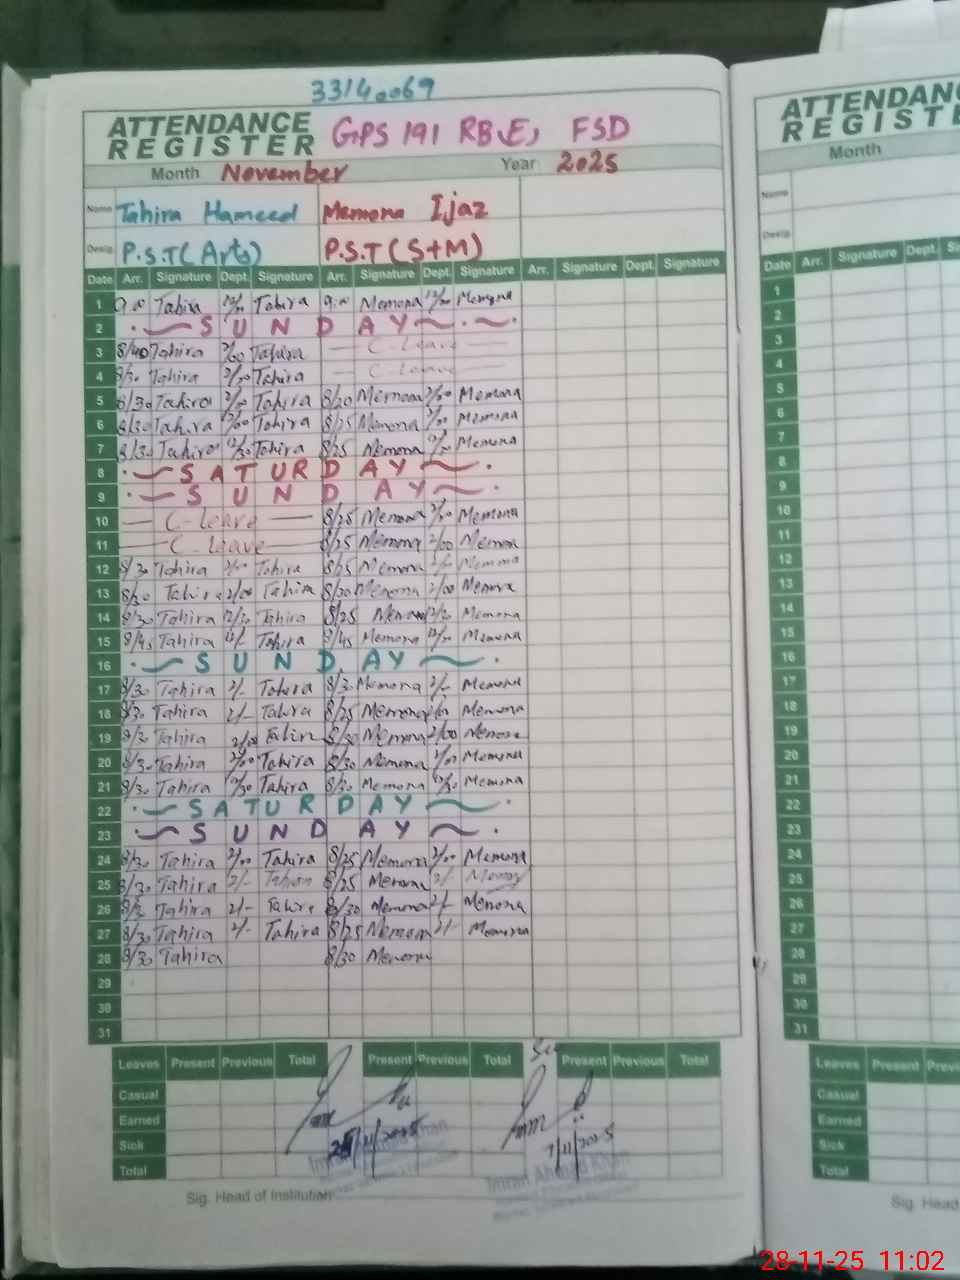 33140069
ATTENDANCE REGISTER GPS 191 RB(E) FSD
Month November Year 2025
Name Tahira Hameed Memona Ijaz
Desig. P.S.T (Arts) P.S.T (S+M)
Date Arr. Signature Dept. Signature Arr. Signature Dept. Signature Arr. Signature Dept. Signature
1 9:00 Tahira Tahira 9:00 Memona Memona
2 SUNDAY
3 8/40 Tahira Tahira C-Leave
4 8/30 Tahira Tahira C-Leave
5 8/30 Tahira 2/00 Tahira 8/20 Memona 2/00 Memona
6 8/30 Tahira Tahira 8/25 Memona 2/00 Memona
7 8/30 Tahira 12/30 Tahira 8/25 Memona Memona
8 SATURDAY
9 SUNDAY
10 C-Leave 8/25 Memona 2/00 Memona
11 C-Leave 8/25 Memona 2/00 Memona
12 8/30 Tahira 2/00 Tahira 8/25 Memona 2/00 Memona
13 8/30 Tahira 2/00 Tahira 8/20 Memona 2/00 Memona
14 8/30 Tahira 12/30 Tahira 8/25 Memona 12/30 Memona
15 8/45 Tahira Tahira Memona Memona
16 SUNDAY
17 8/30 Tahira 2/- Tahira 8/30 Memona 2/- Memona
18 8/30 Tahira 2/- Tahira 8/25 Memona Memona
19 8/30 Tahira 2/00 Tahira 8/30 Memona 2/00 Memona
20 8/30 Tahira 2/00 Tahira 8/30 Memona 2/00 Memona
21 8/30 Tahira 12/30 Tahira 8/30 Memona 12/30 Memona
22 SATURDAY
23 SUNDAY
24 8/30 Tahira 2/00 Tahira 8/25 Memona 2/00 Memona
25 8/30 Tahira 2/- Tahira 8/25 Memona 2/- Memona
26 8/30 Tahira 2/- Tahira 8/30 Memona 2/- Memona
27 8/30 Tahira 2/- Tahira 8/25 Memona 2/- Memona
28 8/30 Tahira 8/30 Memona
29
30
31
Leaves Present Previous Total Present Previous Total Present Previous Total
Casual
Earned
Sick
Total
7/11/2025
Imran Ahmad Khan
Sig. Head of Institution
ATTENDAN
REGISTE
Month
Name
Desig.
Date Arr. Signature Dept.
1
2
3
4
5
6
7
8
9
10
11
12
13
14
15
16
17
18
19
20
21
22
23
24
25
26
27
28
29
30
31
Leaves Present
Casual
Earned
Sick
Total
Sig. Head
28-11-25 11:02